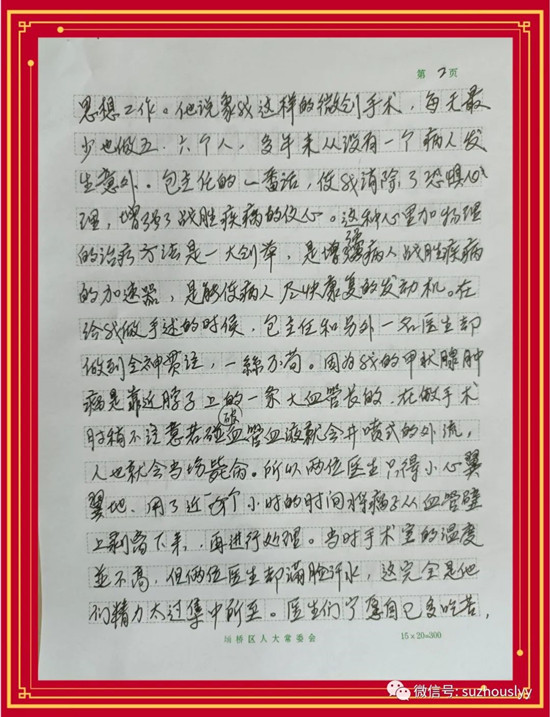 第 2 页
思想工作。他说象我这样的微创手术，每天最
少也做五、六个人，多年来从没有一个病人发
生意外。包主任的一番话，使我消除了恐惧心
理，增强了战胜疾病的信心。这种心里加物理
的治疗方法是一大创举，是增强病人战胜疾病
的加速器，是能使病人尽快康复的发动机。在
给我做手述的时候，包主任和另外一名医生却
做到全神贯注，一絲不苟。因为我的甲状腺肿
病是靠近脖子上的一条大血管长的，在做手术
时稍不注意若碰破血管血液就会井喷式的外流，
人也就会当场毙命。所以两位医生只得小心翼
翼地，用了近一个小时的时间将瘤子从血管壁
上剥离下来，再进行处理。当时手术室的温度
並不高，但两位医生却满脸汗水，这完全是他
们精力太过集中所至。医生们宁愿自己多吃苦，
埇桥区人大常委会
15×20=300
微信号: suzhouslyy